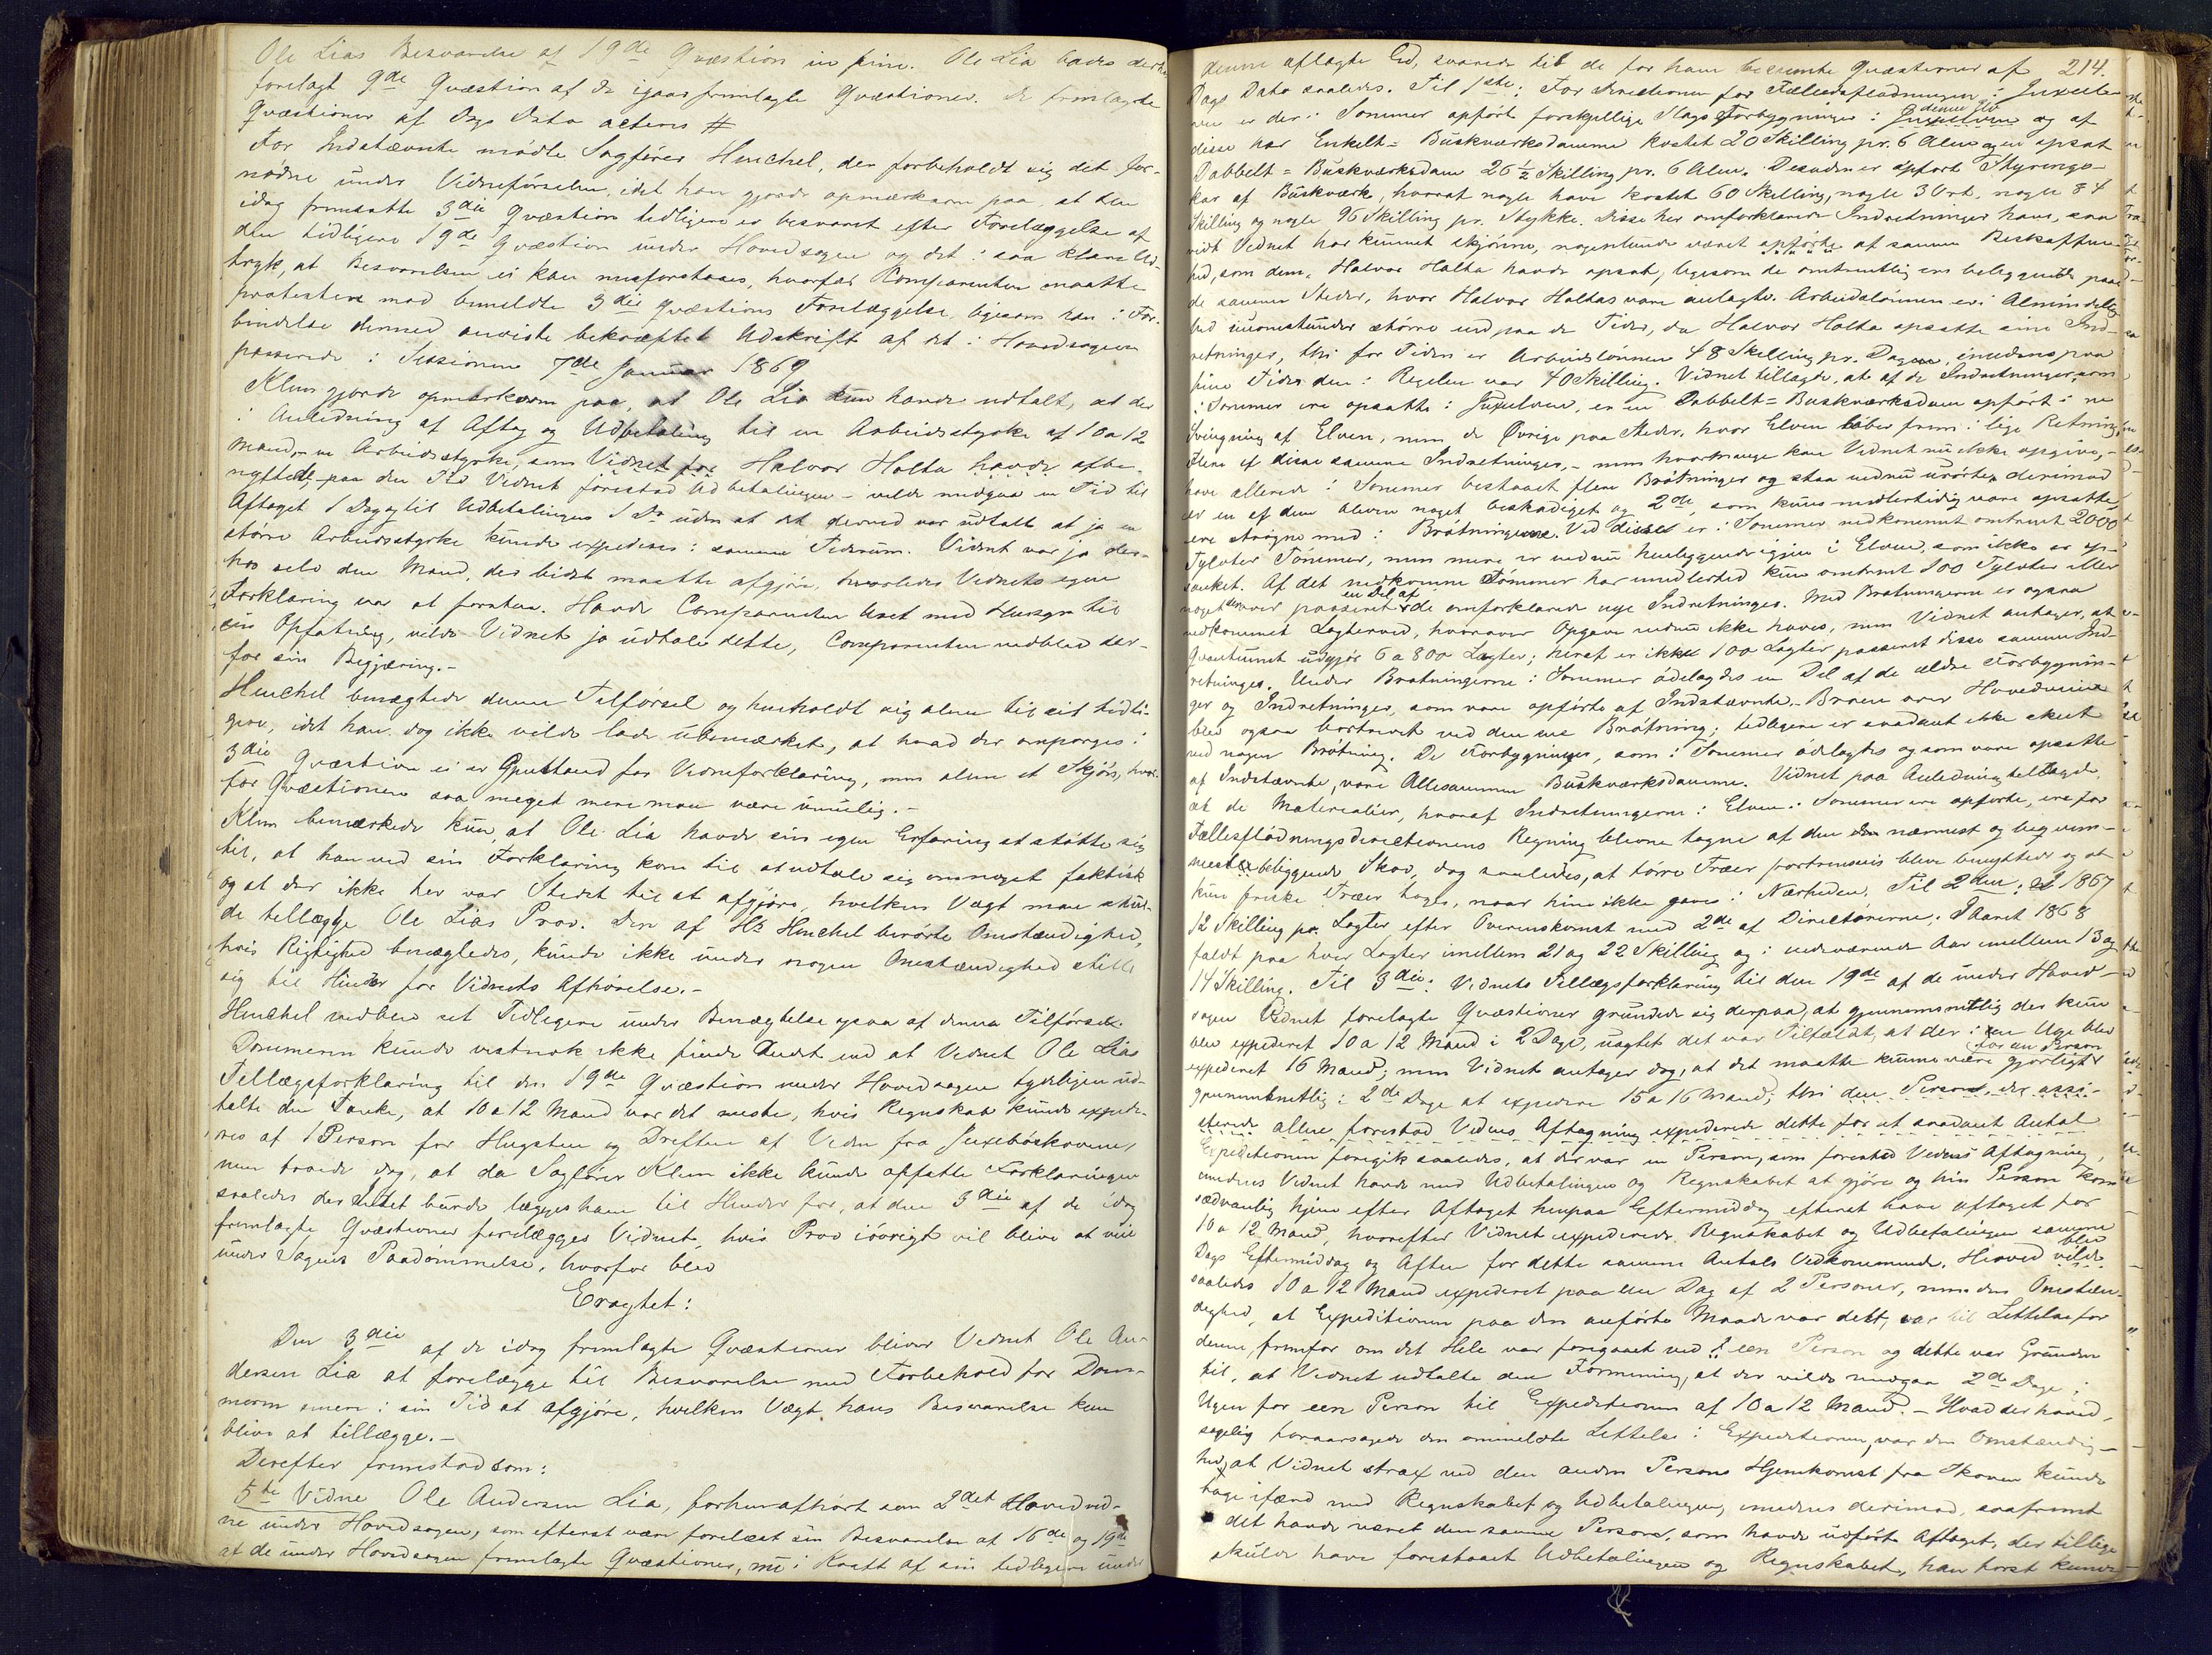 Ole Lias Besvarelse af 19de Qvæstion in fine. Ole Lia bades derhos
forelagt 9de Qvæstion af de igaar fremlagte Qvæstioner. De fremlagte
Qvæstioner af Dags Dato acteres #
For Indstævnte mødte Sagfører Henchel, der forbeholdt sig det for-
nødne under Vidneførselen, idet han gjorde opmærksom paa, at den
idag fremsatte 3die Qvæstion tidligere er besvaret efter Forelæggelse af
den tidligere 19de Qvæstion under Hovedsagen og det i saa klare Ud-
tryk, at Besvarelsen ei kan misforstaaes, hvorfor Comparenten maatte
protestere mod bemeldte 3die Qvæstions Forelæggelse, ligesom han i For-
bindelse dermed anviste bekræftet Udskrift af det i Hovedsagen
passerede i Sessionen 7de Januar 1869
Klem gjorde opmærksom paa, at Ole Lia kun havde udtalt, at der
i Anledning af Aftag og Udbetaling til en Arbeidsstyrke af 10 a 12
Mand, - en Arbeidsstyrke, som Vidnet for Halvor Holta havde afbe-
nyttet, - paa den Tid Vidnet forestod Udbetalingen - vilde medgaa en Tid til
Aftaget 1 Dag og til Udbetalingen 1 Do uden at det derved var udtalt at jo en
større Arbeidsstyrke kunde expederes i samme Tidsrum. Vidnet var jo der-
hos selv den Mand, der bedst maatte afgjøre, hvorledes Vidnets egen
Forklaring var at forstaa. Havde Comparenten Uret med Hensyn til
sin Opfatning, vilde Vidnet jo udtale dette, Comparenten vedblev der-
for sin Begjæring.-
Henchel benægtede denne Tilførsel og henholdt sig alene til sit tidli-
gere, idet han dog ikke vilde lade ubemærket, at hvad der omspørges i
3die Qvæstion ei er Gjenstand for Vidneforklaring, men alene et Skjøn, hvor-
for Qvæstionen saa meget mere maa være umulig.-
Klem bemærkede kun, at Ole Lia havde sin egen Erfaring at støtte sig
til, at han ved sin Forklaring kom til at udtale sig om noget faktisk
og at der ikke her var Stedet til at afgjøre, hvilken Vægt man skul-
de tillægge Ole Lias Prov. Den af Hr Henchel berørte Omstændighed,
hvis Rigtighed benægtedes, kunde ikke under nogen Omstændighed stille
sig til Hinder for Vidnets Afhørelse.-
Henchel vedblev sit Tidligere under Benægtelse ogsaa af denne Tilførsel.
Dommeren kunde vistnok ikke finde Andet end at Vidnet Ole Lias
Tillægsforklaring til den 19de Qvæstion under Hovedsagen tydeligen ud-
talte den Tanke, at 10 a 12 Mand var det meste, hvis Regnskab kunde expede-
res af 1 Person for Hugsten og Driften af Veden fra Juxebøskovene,
men troede dog, at da Sagfører Klem ikke kunde opfatte Forklaringen
saaledes der Intet burde lægges ham til Hinder for, at den 3die af de idag
fremlagte Qvæstioner forelægges Vidnet, hvis Prov iøvrigt vil blive at veie
under Sagens Paadømmelse, hvorfor blev
Eragtet:
Den 3die af de idag fremlagte Qvæstioner bliver Vidnet Ole An-
dersen Lia at forelægge til Besvarelse med Forbehold for Dom-
meren senere i sin Tid at afgjøre, hvilken Vægt hans Besvarelse kan
blive at tillægge.-
Derefter fremstod som:
5te Vidne Ole Andersen Lia, forhen afhørt som 2det Hovedvid-
ne under Hovedsagen, som efterat være forelæst sin Besvarelse af 16de og 19de
af de under Hovedsagen fremlagte Qvæstioner, nu i Kraft af sin tidligere under
214.
denne aflagte Ed, svarede til de for ham bestemte Qvæstioner af
Dags Dato saaledes. Til 1ste: For Directionen for Fællesflødningen i Juxelv-
en er der i Sommer opført forskjellige Slags Forbygninger i denne Elv og af
disse har Enkelt-Buskværksdamme kostet 20 Skilling pr. 6 Alen og en opsat
Dobbelt-Buskværksdam 26 1/2 Skilling pr. 6 Alen. Desuden er opført Styrings-
kar af Buskværk, hvoraf nogle have kostet 60 Skilling, nogle 3 Ort, nogle 84
Skilling og nogle 96 Skilling pr. Stykke. Disse her omforklarede Indretninger have, saa
vidt Vidnet har kunnet skjønne, nogenlunde været opførte af samme Beskaffen-
hed, som dem, Halvor Holta havde opsat, ligesom de omtrentlig ere beliggende paa
de samme Steder, hvor Halvor Holtas vare anlagte. Arbeidslønnen er i Almindelig-
hed unomstunder større end paa de Tider, da Halvor Holta opsatte sine Ind-
retninger, thi for Tiden er Arbeidslønnen 48 Skilling pr. Dag, imedens paa
hine Tider den i Regelen var 40 Skilling. Vidnet tillagde, at af de Indretninger, som
i Sommer ere opsatte i Juxelven, er en Dobbelt-Buskværksdam opført i en
Svingning af Elven, men de Øvrige paa Steder, hvor Elven løber frem i lige Retning,
Flere af disse samme Indretninger, - men hvormange kan Vidnet nu ikke opgive, -
have allerede i Sommer bestaaet flere Brøtninger og staa endnu urørte, derimod
er en af dem bleven noget beskadiget og 2de, som kuns midlertidig vare opsatte,
ere strøgne med i Brøtningerne. Ved disse er i Sommer nedkommet omtrent 2000
Tylvter Tømmer, men mere er endnu henliggende igjen i Elven, som ikke er op-
sanket. Af det nedkomne Tømmer har imidlertid kun omtrent 100 Tylvter eller
noget over passeret en Del af de omforklarede nye Indretninger. Med Brøtningerne er ogsaa
nedkommet Lagterved, hvorover Opgave endnu ikke haves, men Vidnet antager, at
Qvantumet udgjør 6 a 800 Lagter; heraf er ikke 100 Lagter passeret disse samme Ind-
retninger. Under Brøtningerne i Sommer ødelagdes en Del af de ældre Forbygnin-
ger og Indretninger, som vare opførte af Indstævnte. Broen over Hovedveien
blev ogsaa bortrevet ved den ene Brøtning; tidligere er saadant ikke skeet
ved nogen Brøtning. De Forbygninger, som i Sommer ødelagtes og som vare opsatte
af Indstævnte, vare Allesammen Buskværksdamme. Vidnet paa Anledning tillagde,
at de Materialier, hvoraf Indretningerne i Elven i Sommer ere opførte, ere for
Fællesflødningsdirectionens Regning blevne tagne af den nærmest og beqvem-
mest beliggende Skov, dog saaledes, at tørre Træer fortrinsvis bleve benyttede og at
kun friske Træer toges, naar hine ikke gaves i Nærheden. Til 2den: I 1867
12 Skilling pr. Lagter efter Overenskomst med 2de af Directørerne. I Aaret 1868
faldt paa hver Lagter imellem 21 og 22 Skilling og i indeværende Aar imellem 13 og
14 Skilling. Til 3die: Vidnets Tillægsforklaring til den 19de af de under Hoved-
sagen Vidnet forelagte Qvæstioner grundede sig derpaa, at gjennemsnitlig der kun
blev expederet 10 a 12 Mand i 2 Dage, uagtet det var Tilfældet, at der i en Uge blev
expederet 16 Mand; men Vidnet antager dog, at det maatte kunne være gjørligt for en Person
gjennemsnitlig i 2de Dage at expedere 15 a 16 Mand; thi den Person, der assi-
sterede alene forestod Vedens Aftagning expederede dette for et saadant Antal
Expeditionen foregik saaledes, at der var en Person, som forestod Vedens Aftagning,
imedens Vidnet havde med Udbetalingen og Regnskabet at gjøre og hin Person kom
sædvanlig hjem efter Aftaget henpaa Eftermiddag efterat have aftaget for
10 a 12 Mand, hvorefter Vidnet expederede Regnskabet og Udbetalingen samme
Dags Eftermiddag og Aften for dette samme Antals Vedkommende. Herved blev vilde
saaledes 10 a 12 Mand expederet paa een Dag af 2 Personer, men den Omstæn-
dighed, at Expeditionen paa den anførte Maade var delt, var til Lettelse for
denne, fremfor om det Hele var foregaaet ved een Person og dette var Grunden
til, at Vidnet udtalte den Formening, at der vilde medgaa 2de Dage i
Ugen for een Person til Expeditionen af 10 a 12 Mand. - Hvad der hoved-
sagelig foraarsagede den ommeldte Lettelse i Expeditionen, var den Omstændig-
hed, at Vidnet strax ved den anden Persons Hjemkomst fra Skoven kunde
tage ifærd med Regnskabet og Udbetalingen, imedens derimod, saafremt
det havde været den samme Person, som havde udført Aftaget, der tillige
skulde have forestaaet Udbetalingen og Regnskabet, han først kunde